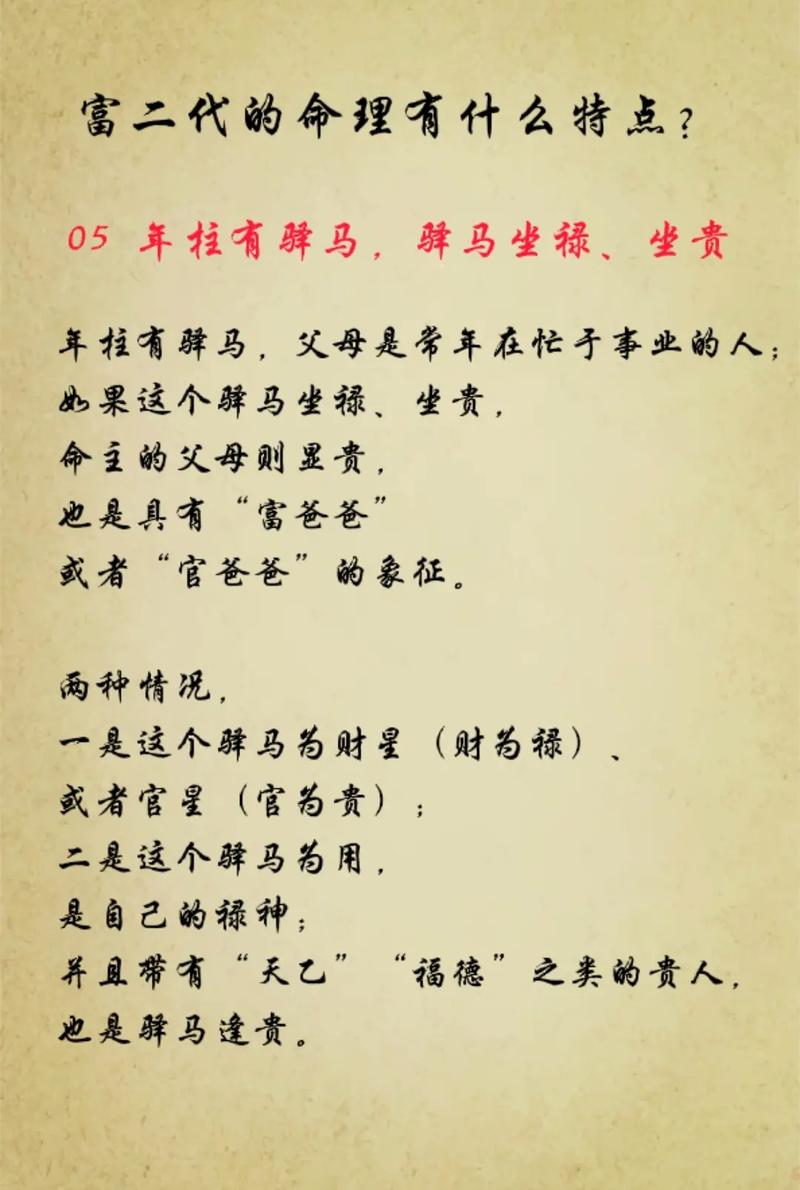 富二代的命理有什么特点?
05 年柱有驿马，驿马坐禄、坐贵
年柱有驿马，父母是常年在忙于事业的人；
如果这个驿马坐禄、坐贵，
命主的父母则显贵，
也是具有“富爸爸”
或者“官爸爸”的象征。
两种情况，
一是这个驿马为财星（财为禄）、
或者官星（官为贵）；
二是这个驿马为用，
是自己的禄神；
并且带有“天乙”“福德”之类的贵人，
也是驿马逢贵。